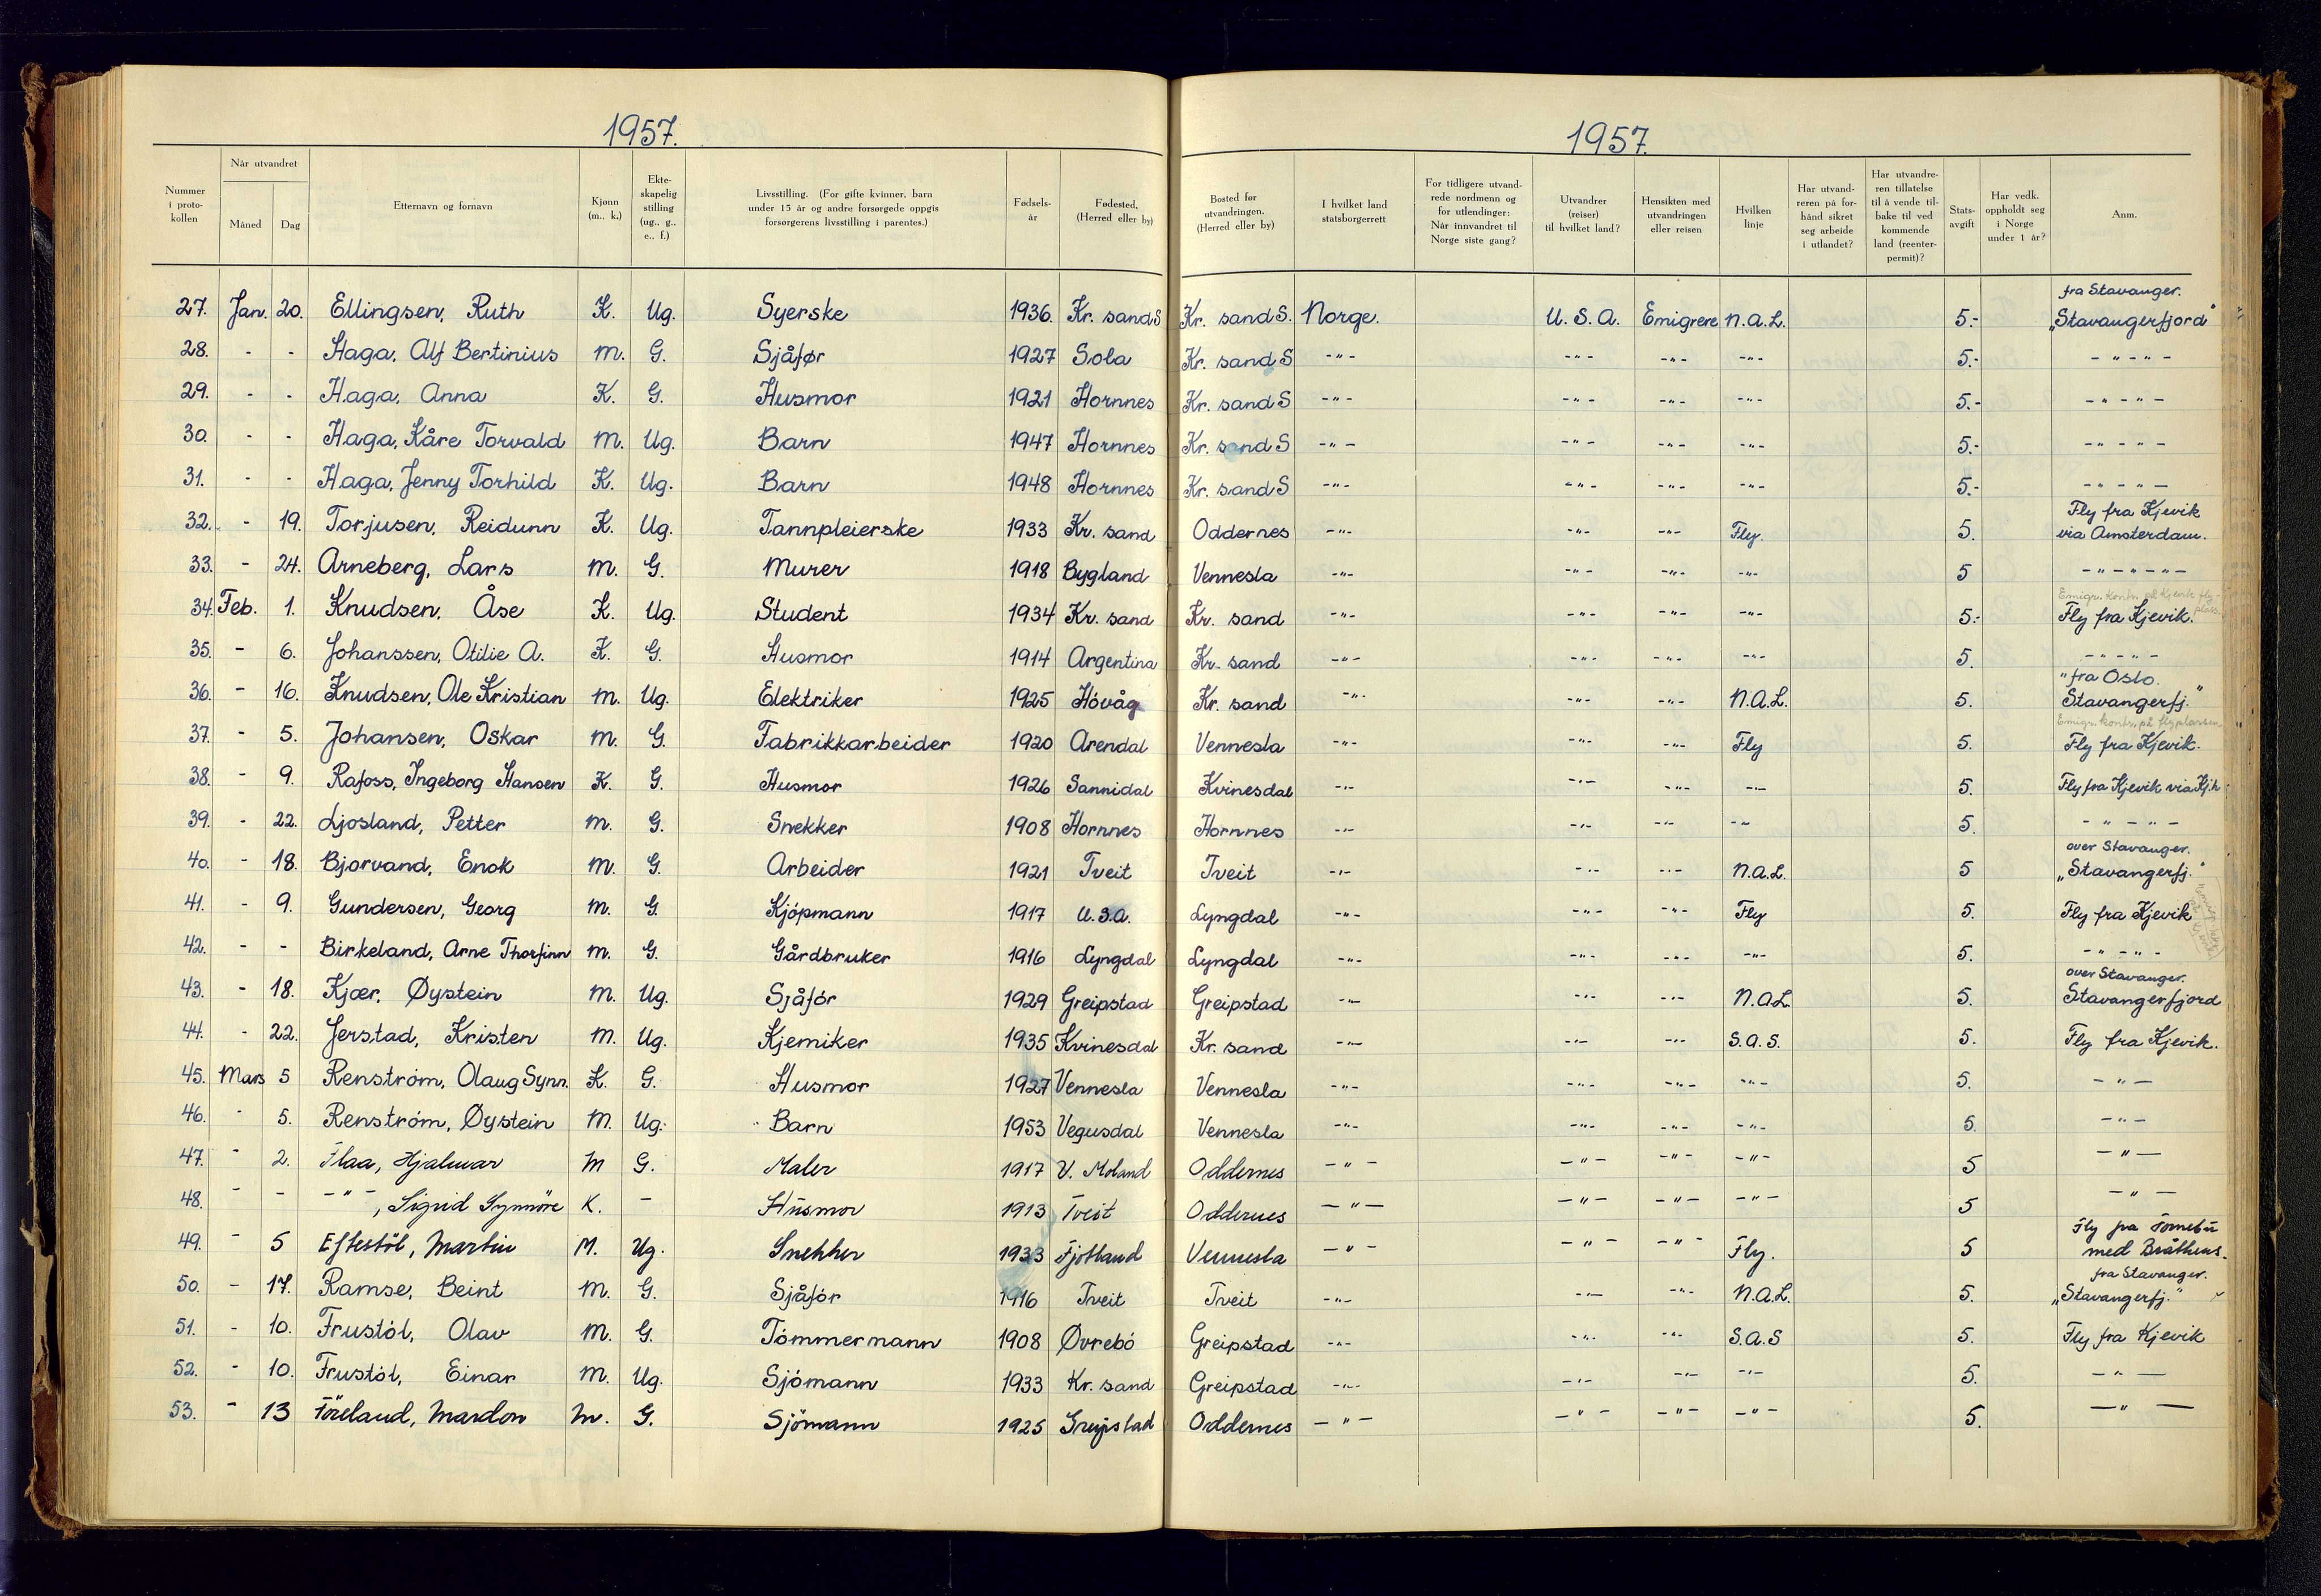 1957.
1957.
Nummer i proto-kollen | Når utvandret Måned | Dag | Etternavn og fornavn | Kjønn (m., k.) | Ekte-skapelig stilling (ug., g., e., f.) | Livsstilling. (For gifte kvinner, barn under 15 år og andre forsørgede oppgis forsørgerens livsstilling i parentes.) | Fødsels-år | Fødested, (Herred eller by) | Bosted før utvandringen. (Herred eller by) | I hvilket land statsborgerrett | For tidligere utvand-rede nordmenn og for utlendinger: Når innvandret til Norge siste gang? | Utvandrer (reiser) til hvilket land? | Hensikten med utvandringen eller reisen | Hvilken linje | Har utvand-reren på for-hånd sikret seg arbeide i utlandet? | Har utvandre-ren tillatelse til å vende til-bake til ved kommende land (reenter-permit)? | Stats-avgift | Har vedk. oppholdt seg i Norge under 1 år? | Anm.
27. Jan. 20. Ellingsen, Ruth K. Ug. Syerske 1936. Kr. sand S Kr. sand S. Norge. U.S.A. Emigrere N.A.L. 5.- fra Stavanger. "Stavangerfjord"
28. - - Haga, Alf Bertinius M. G. Sjåfør 1927 Sola Kr. sand S -"- -"- -"- -"- 5.- -"-"-
29. - - Haga, Anna K. G. Husmor 1921 Hornnes Kr. sand S -"- -"- -"- -"- 5.- -"-"-
30. - - Haga, Kåre Torvald M. Ug. Barn 1947 Hornnes Kr. sand S -"- -"- -"- -"- 5.- -"-"-
31. - - Haga, Jenny Torhild K. Ug. Barn 1948 Hornnes Kr. sand S -"- -"- -"- -"- 5.- -"-"-
32. - 19. Torjusen, Reidunn K. Ug. Tannpleierske 1933 Kr. sand Oddernes -"- -"- -"- Fly. 5. Fly fra Kjevik via Amsterdam.
33. - 24. Arneberg, Lars M. G. Murer 1918 Bygland Vennesla -"- -"- -"- -"- 5 -"-"-"-
34. Feb. 1. Knudsen, Åse K. Ug. Student 1934 Kr. sand Kr. sand -"- -"- -"- -"- 5.- Emigr. kontr. på Kjevik fly-plass. Fly fra Kjevik.
35. - 6. Johanssen, Otilie A. K. G. Husmor 1914 Argentina Kr. sand -"- -"- -"- -"- 5. -"-"-
36. - 16. Knudsen, Ole Kristian M. Ug. Elektriker 1925 Hövåg Kr. sand -"- -"- -"- N.A.L. 5. fra Oslo. "Stavangerfj."
37. - 5. Johansen, Oskar M. G. Fabrikkarbeider 1920 Arendal Vennesla -"- -"- -"- Fly 5. Emigr. kontr. på flyplassen. Fly fra Kjevik.
38. - 9. Rafoss, Ingeborg Hansen K. G. Husmor 1926 Sannidal Kvinesdal -"- -"- -"- -"- 5. Fly fra Kjevik via Kj.h
39. - 22. Ljosland, Petter M. G. Snekker 1908 Hornnes Hornnes -"- -"- -"- -"- 5. -"-"-
40. - 18. Bjorvand, Enok M. G. Arbeider 1921 Tveit Tveit -"- -"- -"- N.A.L. 5 over Stavanger. "Stavangerfj."
41. - 9. Gundersen, Georg M. G. Kjöpmann 1917 U.S.A. Lyngdal -"- -"- -"- Fly 5. Fly fra Kjevik
42. - - Birkeland, Arne Thorfinn M. G. Gårdbruker 1916 Lyngdal Lyngdal -"- -"- -"- -"- 5. -"-"-
43. - 18. Kjær, Øystein M. Ug. Sjåför 1929 Greipstad Greipstad -"- -"- -"- N.A.L. 5. over Stavanger. Stavangerfjord
44. - 22. Jerstad, Kristen M. Ug. Kjemiker 1935 Kvinesdal Kr. sand -"- -"- -"- S.A.S. 5. Fly fra Kjevik.
45. Mars 5 Renström, Olaug Synn. K. G. Husmor 1927 Vennesla Vennesla -"- -"- -"- -"- 5. -"-
46. - 5. Renström, Øystein M. Ug. Barn 1953 Vegusdal Vennesla -"- -"- -"- -"- 5. -"-
47. - 2. Flaa, Hjalmar M G. Maler 1917 V. Moland Oddernes -"- -"- -"- -"- 5 -"-
48. - - -"-, Sigrid Synnöve K. - Husmor 1913 Tveit Oddernes -"- -"- -"- -"- 5 -"-
49. - 5 Eftestöl, Martin M. Ug. Snekker 1933 Fjotland Vennesla -"- -"- -"- Fly. 5 Fly fra Fornebu med Bråthens.
50. - 17. Ramse, Beint M. G. Sjåför 1916 Tveit Tveit -"- -"- -"- N.A.L. 5. fra Stavanger. "Stavangerfj."
51. - 10. Frustöl, Olav M. G. Tömmermann 1908 Øvrebö Greipstad -"- -"- -"- S.A.S 5. Fly fra Kjevik
52. - 10. Frustöl, Einar M. Ug. Sjömann 1933 Kr. sand Greipstad -"- -"- -"- -"- 5. -"-
53. - 13 Töreland, Mardon M. G. Sjömann 1925 Greipstad Oddernes -"- -"- -"- -"- 5. -"-